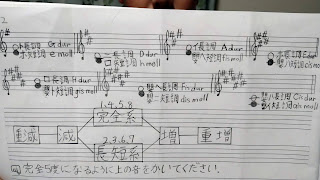 2
ト長調 G dur
ホ短調 e moll
ニ長調 D dur
ロ短調 h moll
イ長調 A dur
嬰ヘ短調 fis moll
ホ長調 E dur
嬰ハ短調 cis moll
ロ長調 H dur
嬰ト短調 gis moll
嬰ヘ長調 Fis dur
嬰ニ短調 dis moll
嬰ハ長調 Cis dur
嬰イ短調 ais moll
1, 4, 5, 8
完全系
重減 減 増 重増
2, 3, 6, 7
長短系
問 完全5度になるように上の音をかいてください。